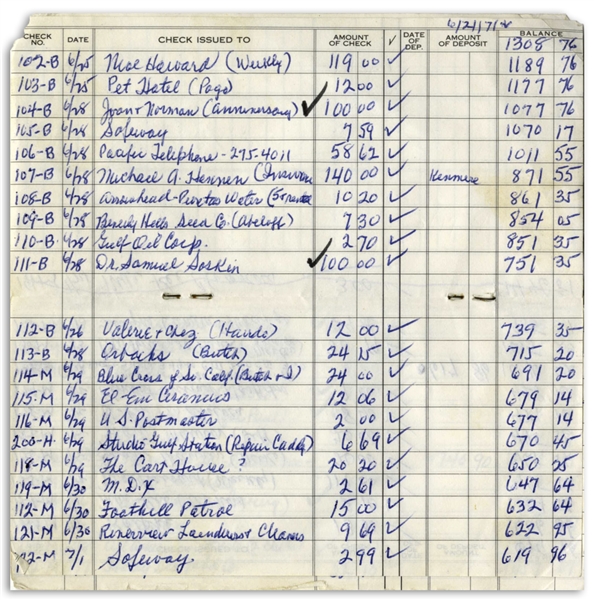 6/21/71
CHECK NO. DATE CHECK ISSUED TO AMOUNT OF CHECK √ DATE OF DEP. AMOUNT OF DEPOSIT BALANCE
1308 76
102-B 6/25 Moe Howard (Weekly) 119 00 ✓ 1189 76
103-B 6/25 Pet Hotel (Page) 12 00 ✓ 1177 76
104-B 6/28 Joan & Norman (anniversary) ✓ 100 00 ✓ 1077 76
105-B 6/28 Safeway 7 59 ✓ 1070 17
106-B 6/28 Pacific Telephone - 275-4011 58 62 ✓ 1011 55
107-B 6/28 Michael A. 140 00 ✓ 871 55
108-B 6/28 Arrowhead-Puritas Water 10 20 ✓ 861 35
109-B 6/28 Beverly Hills Seed Co. 7 30 ✓ 854 05
110-B 6/28 Gulf Oil Corp. 2 70 ✓ 851 35
111-B 6/28 Dr. Samuel Soskin ✓ 100 00 751 35
112-B 6/26 Valerie & Chez (Hands) 12 00 ✓ 739 35
113-B 6/28 Orbachs (Butch) 24 15 ✓ 715 20
114-M 6/29 Blue Cross of So. Calif. (Butch & I) 24 00 ✓ 691 20
115-M 6/29 El-Em Ceramics 12 06 ✓ 679 14
116-M 6/29 U S. Postmaster 2 00 ✓ 677 14
200-H 6/29 Studio Gulf Station (Repair Caddy) 6 69 ✓ 670 45
118-M 6/29 The Cart House ? 20 20 ✓ 650 25
119-M 6/30 M.D.K 2 61 ✓ 647 64
112-M 6/30 Foothill Patrol 15 00 ✓ 632 64
121-M 6/30 Riverview Launderers & Cleaners 9 69 ✓ 622 95
122-M 7/1 Safeway 2 99 ✓ 619 96